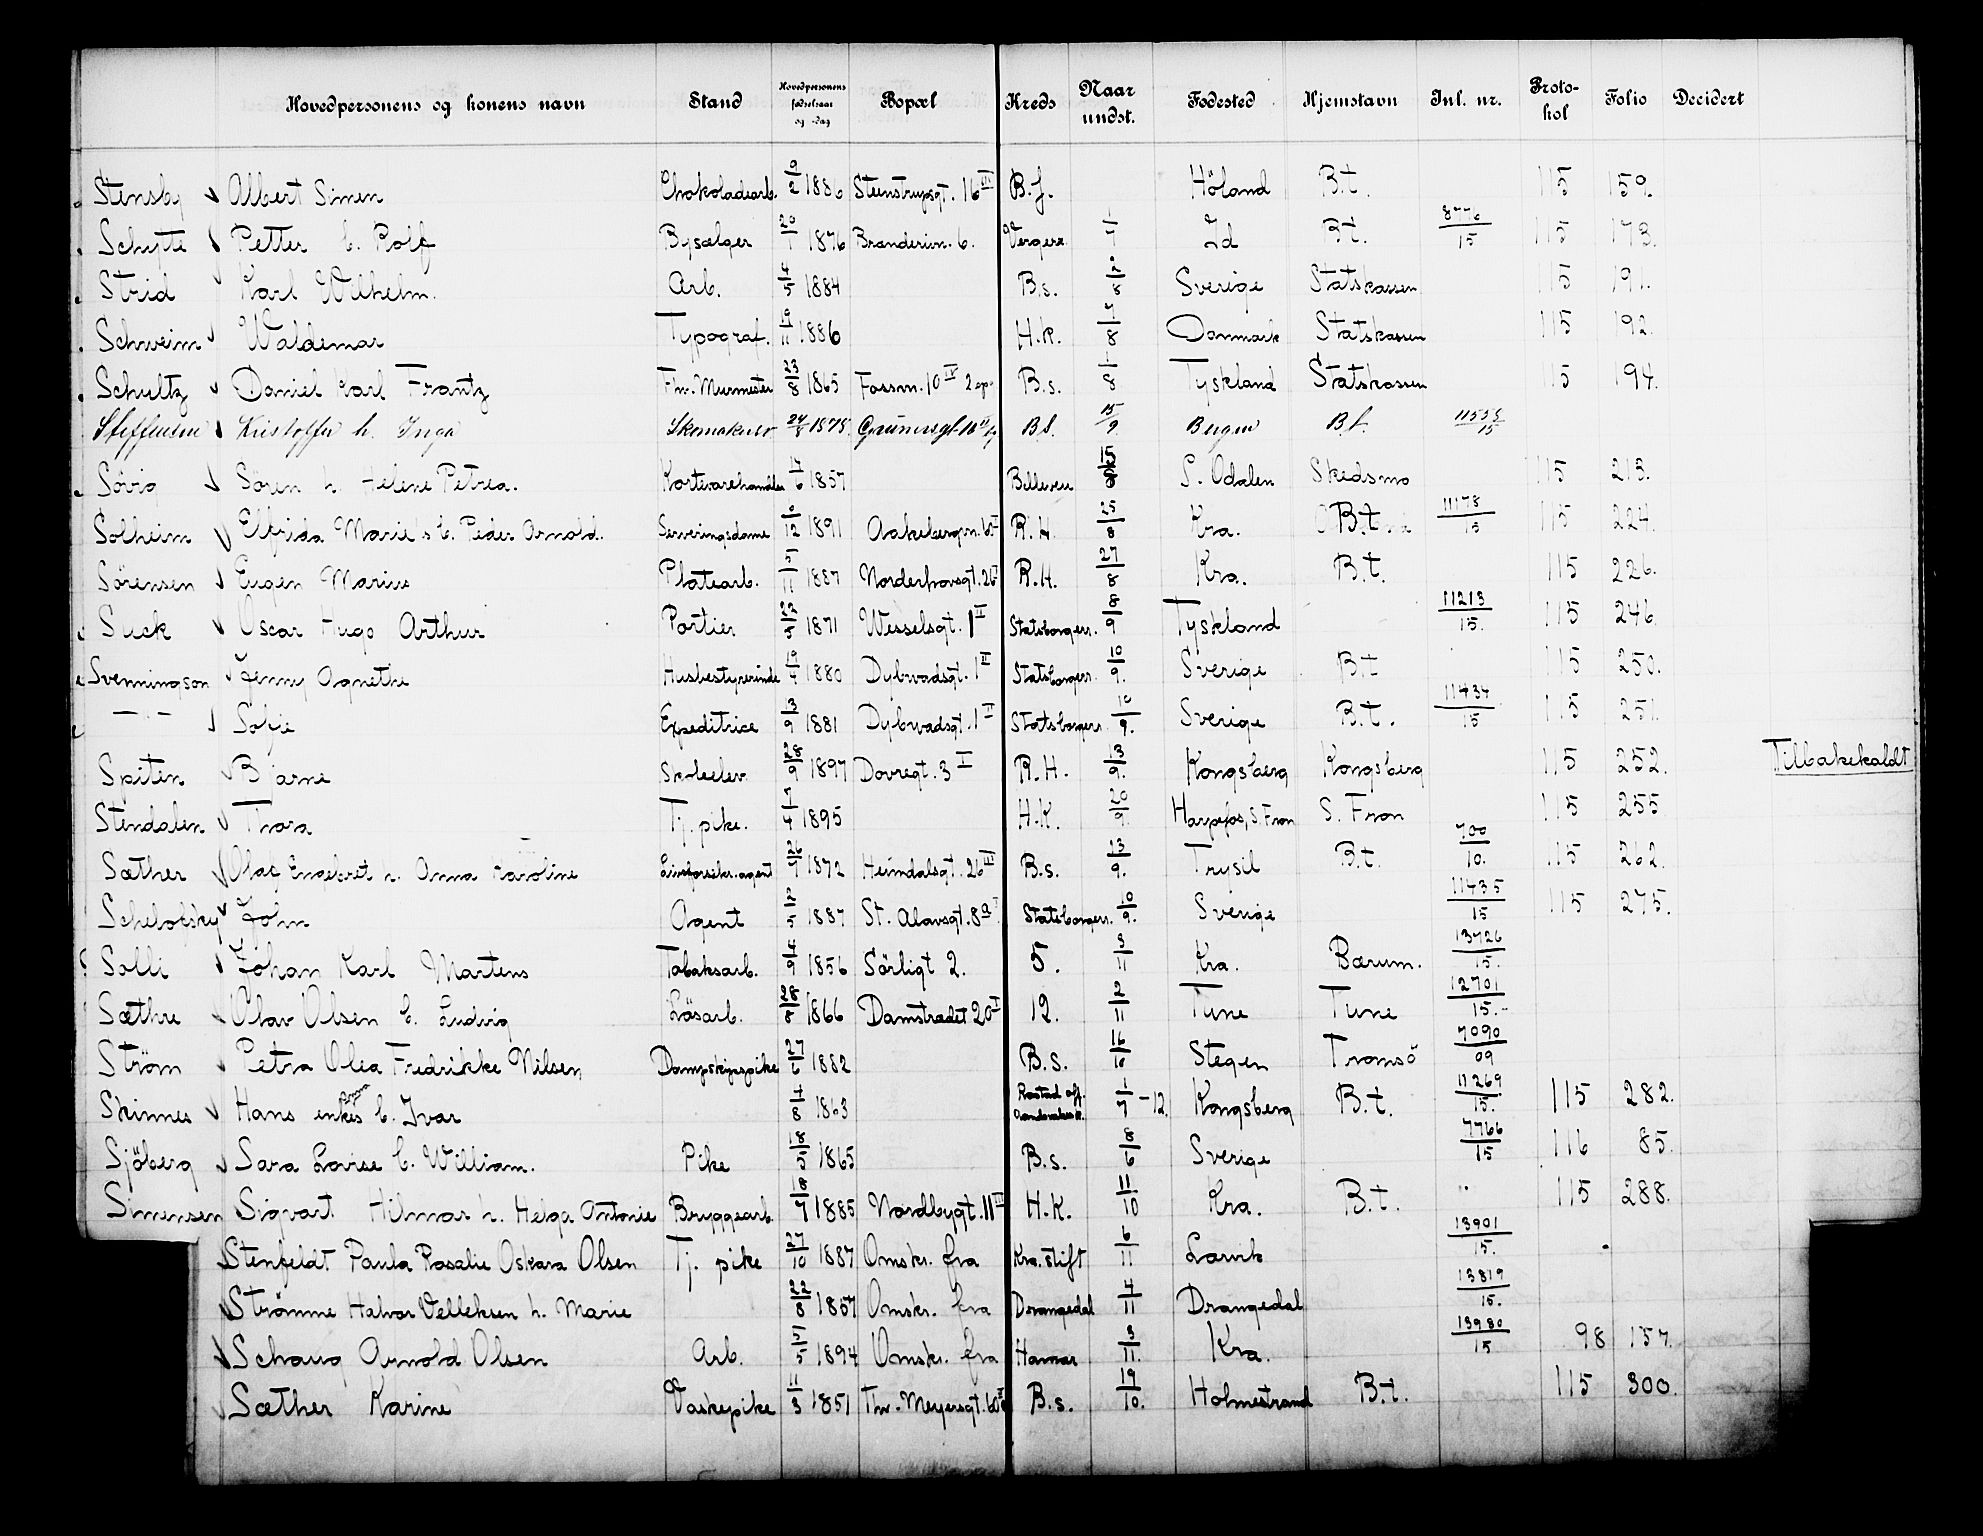 Hovedpersonens og konens navn Stand Hovedpersonens fødselsaar og -dag Bopæl Kreds Naar undst. Fødested Hjemstavn Inl. nr. Proto-kol Folio Decidert
Stensby Albert Simen Chokoladearb. 9/2 1886 Steenstrupsgt. 16 III B.f. Höland B.t. 115 159.
Schytte Petter b. Rolf Bysælger 20/1 1876 Branderivn. 6. Vergerr. 1/7 Id B.t. 8776/15 115 173.
Strid Karl Wilhelm. Arb. 4/5 1884 B.s. 2/8 Sverige Statskassen 115 191.
Schweim Waldemar Typograf. 19/11 1886 H.K. 7/8 Danmark Statskassen 115 192.
Schultz Daniel Karl Frantz Fhv. Murmester 23/8 1865 Fossvn. 10 IV 2 opg. B.s. 1/8 Tyskland Statskassen 115 194.
Steffensen Kristoffer h. Inga Skomakersv. 24/8 1878. B.S. 15/9 Bergen B.t. 11535/15
Sövig Sören h. Helene Petrea. Kortevarehandler 14/6 1857 Billevew S. Odalen Skedsmo 115 213.
Solheim Elfrida Marie's b. Peder Arnold. Serveringsdame 9/12 1891 Aakebergvn. R.H. 25/8 Kra. B.t. 11178/15 115 224.
Sörensen Eugen Marius Platearb. 5/11 1887 Norderhovsgt. 26 R.H. 27/8 Kra. B.t. 115 226.
Suck Oscar Hugo Arthur Portier 22/5 1871 Wesselsgt. 1 II Statsborgerr. 8/9 Tyskland 11213/15. 115 246.
Svenningson Jenny Agnethe Husbestyrerinde 19/4 1880 Dybwadsgt. 1 II Statsborgerr. 10/9. Sverige B.t 115 250.
— . — Sofie Expeditrice 13/9 1881 Dybwadsgt. 1 II Statsborgerr. 10/9. Sverige B.t. 11434/15 115 251.
Spiten Bjarne Skoleelev 28/9 1897 Dovregt. 3 I R.H. 13/9. Kongsberg Kongsberg 115 252. Tilbakekaldt
Stendalen Thora Tj. pike. 7/4 1895 H.K. 20/9. Harpefos, S. Fron S. Fron 115 255
Sæther Olaf Engebret h. Anna Karoline Livsforsikr. agent 26/7 1872 Heimdalsgt. 26 III B.s. 13/9. Trysil B.t. 700/10. 115 262.
Schelofsky John Agent 2/5 1887 St. Olavsgt. 8 a I Statsborgerr. 10/9. Sverige 11435/15 115 275.
Solli Johan Karl Martens Tobaksarb. 4/9 1856 Sörligt 2. 5. 3/11 Kra. Bærum. 13726/15.
Sæthre Olav Olsen b. Ludvig Lösarb. 28/8 1866 Damstrædet 20 I 12. 2/11 Tune Tune 12701/15.
Ström Petra Olea Fredrikke Nilsen Dampskipspike 27/6 1882 B.S. 16/10 Stegen Tromsö 7090/09
Skinnes Hans enkes b. Ivar 4/8 1863 1/7 -12. Kongsberg B.t. 11269/15. 115 282.
Sjöberg Sara Lovise b. William. Pike 18/5 1865 B.s. 8/6 Sverige 7766/15 116 85.
Simensen Sigvart Hilmar h. Helga Antonie Bryggearb. 18/7 1885 Nordbygt. 11 III H.K. 11/10 Kra. B.t. 115 288.
Stenfeldt Paula Rosalie Oskara Olsen Tj. pike 27/10 1887 Omskr. fra Kra. stift 6/11 Larvik 13901/15.
Strömme Halvor Velleksen h. Marie 22/8 1857 Omskr. fra Drangedal 4/11 Drangedal 13819/15.
Schaug Arnold Olsen Arb. 5/5 1894 Omskr. fra Hamar 3/11. Kra. 13980/15 98 157.
Sæther Karine Vaskepike 11/3 1851 Thv. Meyersgt. B.s. 19/10. Holmestrand B.t. 115 300.